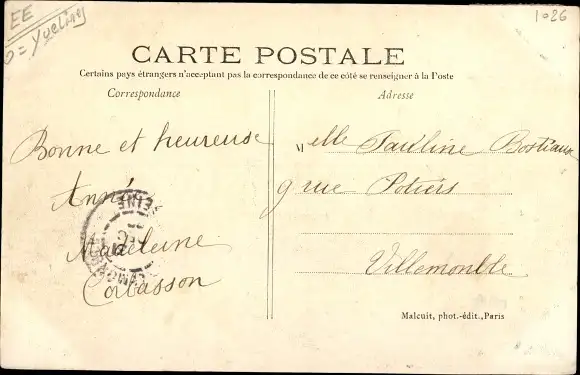 EE
= Yvelines
1026
CARTE POSTALE
Certains pays étrangers n'acceptant pas la correspondance de ce côté se renseigner à la Poste
Correspondance
Bonne et heureuse
Année
Madeleine
Corbasson
Adresse
Melle Pauline Bostiaux
9 rue Potiers
Villemomble
Malcuit, phot.-édit., Paris